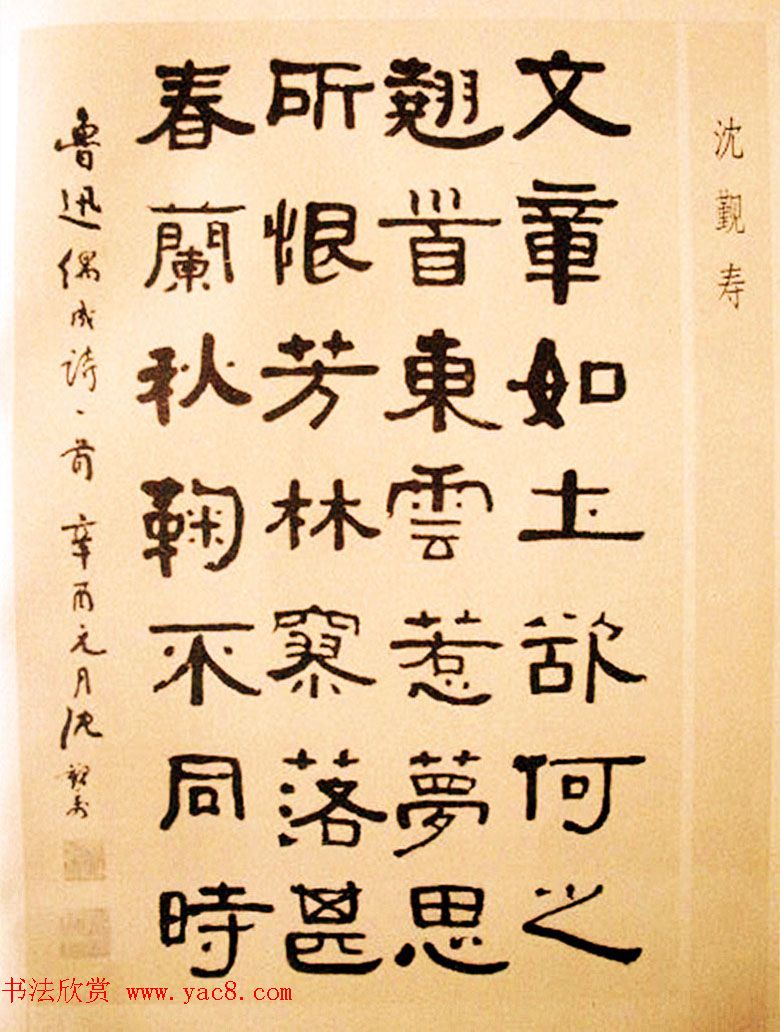 沈觐寿
文章如土欲何之
翹首東雲惹夢思
所恨芳林寥落甚
春蘭秋鞠不同時
魯迅偶成诗一首 辛酉元月沈覲寿
书法欣赏 www.yac8.com